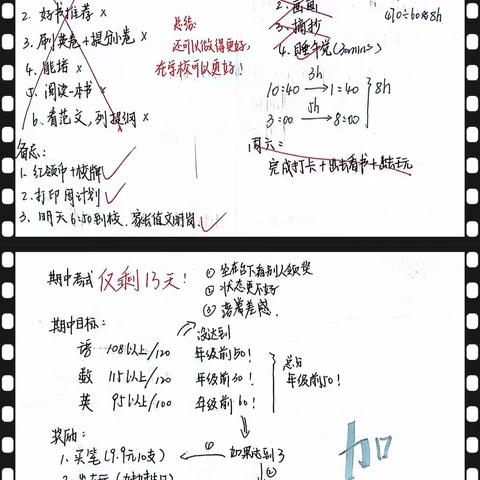 2. 好书推荐 ×
3. 刷奖卷+提分卷 ×
4. 能培 ×
5. 阅读一本书 ×
6. 看范文,列提纲 ×
总结:
还可以做得更好,
在学校可以更好!
备忘:
1. 红领巾+校牌 ✓
2. 打印周计划 ✓
3. 明天6:50到校,家长值文明岗 ✓
3. 摘抄
4. 睡午觉(30mins)
10:40 —3h→ 1:40
3:00 —5h→ 8:00
8h
周六:
完成打卡+出去看书+出去玩
期中考试 仅剩13天!
① 坐在台下看别人领奖
② 状态更不好
③ 落差感
没达到
期中目标:
语 108以上/120 年级前50!
数 115以上/120 年级前30!
英 95以上/100 年级前60!
总分
年级前50!
奖励:
如果达到了
①
1. 买笔(9.9元10支)
②
加